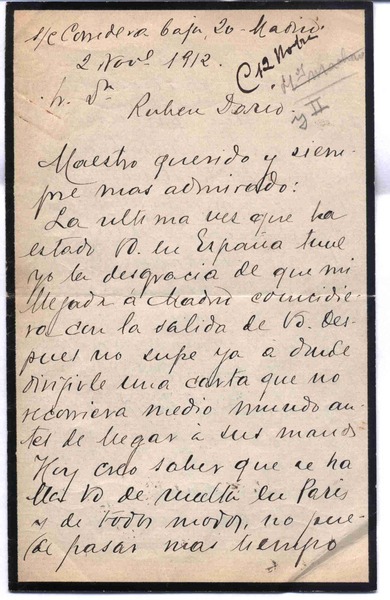 s/c Corredera baja, 20 - Madrid.
2 Novbe 1912.
C 12 Nobre
II
Sr. Dn
Ruben Dario.
Maestro querido y siem-
pre mas admirado:
La ultima ves que ha
estado Vd. en España tuve
yo la desgracia de que mi
llegada á Madrid coincidie-
ra con la salida de Vd. Des-
pues no supe ya á donde
dirigirle una carta que no
recorriera medio mundo an-
tes de llegar á sus manos
Hoy creo saber que se ha
lla Vd de vuelta en Paris
y de todos modos, no pue-
de pasar mas tiempo